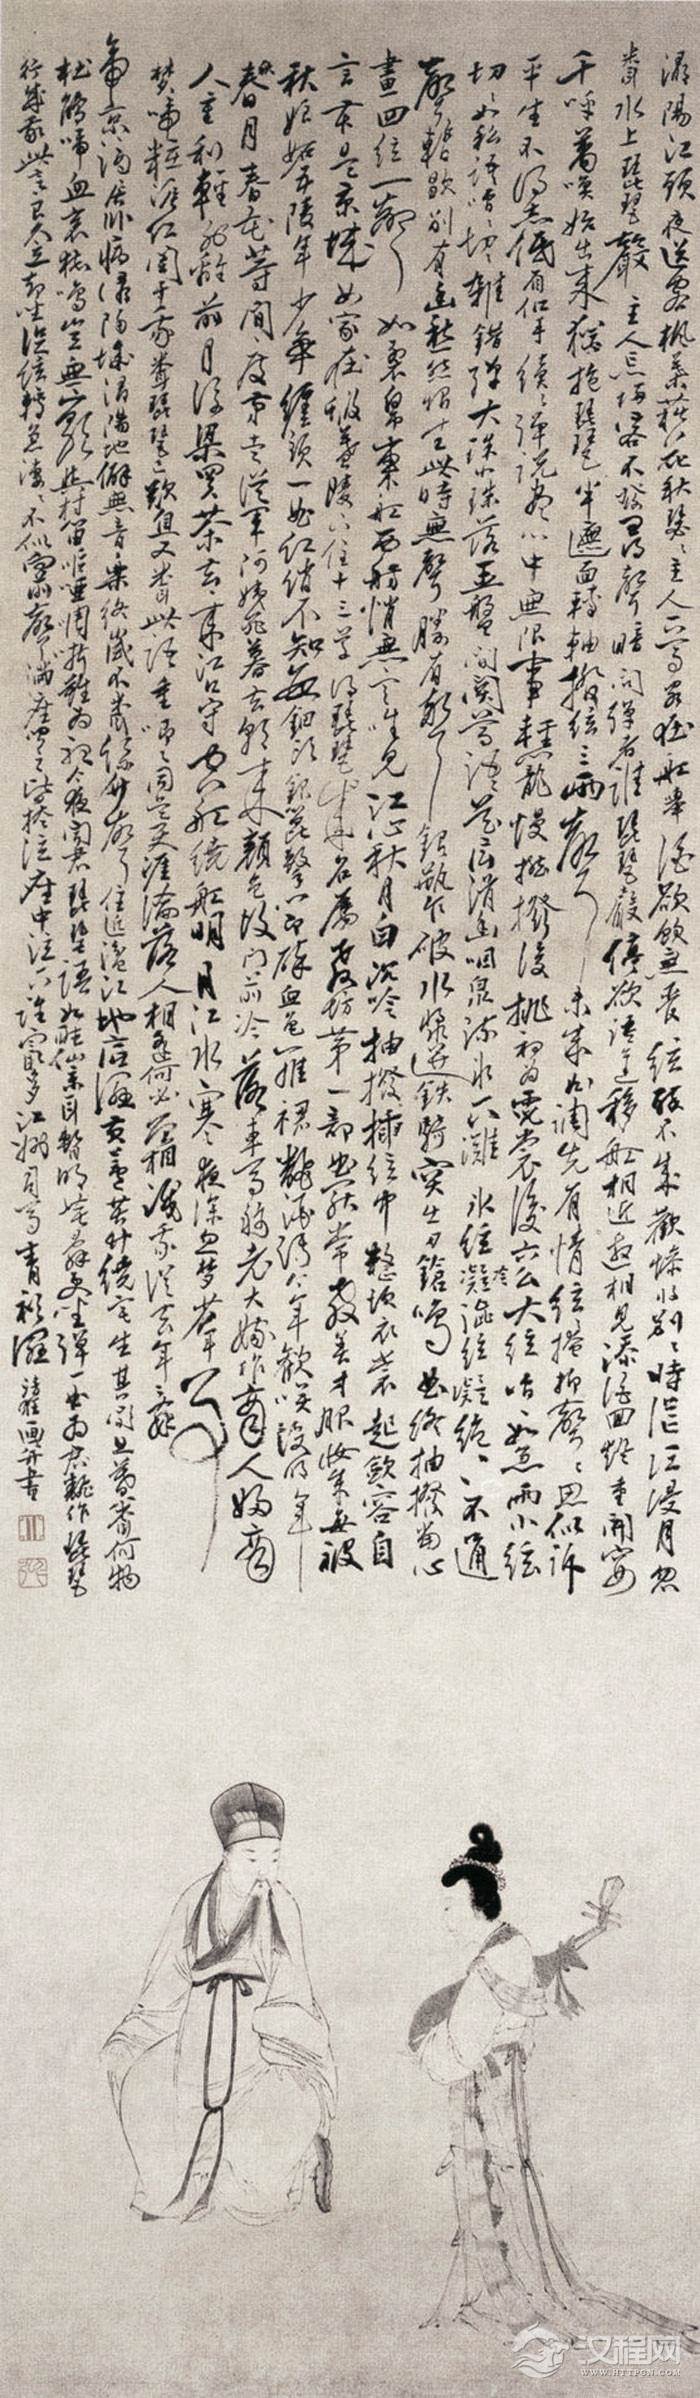 潯陽江頭夜送客楓葉荻花秋瑟瑟主人下馬客在船舉酒欲飲無管絃醉不成歡慘將別別時茫茫江浸月忽
聞水上琵琶聲主人忘歸客不發尋聲暗問彈者誰琵琶聲停欲語遲移船相近邀相見添酒回燈重開宴
千呼萬喚始出來猶抱琵琶半遮面轉軸撥絃三兩聲未成曲調先有情絃絃掩抑聲聲思似訴
平生不得志低眉信手續續彈說盡心中無限事輕攏慢撚撥復挑初為霓裳後六幺大絃嘈嘈如急雨小絃
切切如私語嘈嘈切切雜錯彈大珠小珠落玉盤間關鶯語花底滑幽咽泉流水下灘水絃冷澀絃凝絕凝絕不通
聲暫歇別有幽愁暗恨生此時無聲勝有聲銀瓶乍破水漿迸鐵騎突出刀鎗鳴曲終抽撥當心
畫四絃一聲如裂帛東船西舫悄無言唯見江心秋月白沉吟抽撥插絃中整頓衣裳起斂容自
言本是京城女家在蝦蟇陵下住十三學得琵琶成名屬教坊第一部曲罷常教善才服妝成每被
秋娘妬五陵年少爭纏頭一曲紅綃不知數鈿頭銀篦擊節碎血色羅裙翻酒污今年歡笑復明年
秋月春花等閒度弟走從軍阿姨死暮去朝來顏色故門前冷落車馬稀老大嫁作商人婦商
人重利輕別離前月浮梁買茶去去來江口守空船繞船明月江水寒夜深忽夢少年事
夢啼粧淚紅闌干我聞琵琶已歎息又聞此語重唧唧同是天涯淪落人相逢何必曾相識我從去年辭
帝京謫居臥病潯陽城潯陽地僻無音樂終歲不聞絲竹聲住近湓江地低濕黃蘆苦竹繞宅生其間旦暮聞何物
杜鵑啼血哀猿鳴豈無山歌與村笛嘔啞嘲哳難為聽今夜聞君琵琶語如聽仙樂耳暫明莫辭更坐彈一曲為君翻作琵琶
行感我此言良久立却坐促絃絃轉急淒淒不似向前聲滿座聞之皆掩泣座中泣下誰最多江州司馬青衫濕 清狂畫并書
汉程网
WWW.HTTPCN.COM